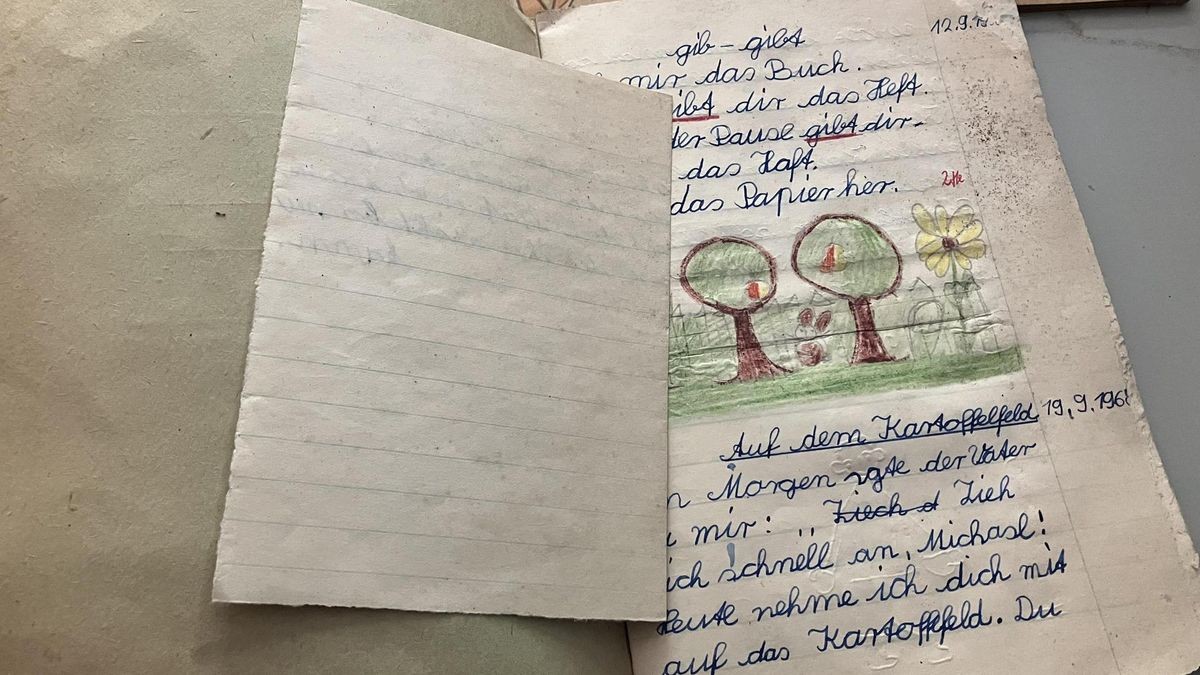 gib - gibt
12.9.19
mir das Buch.
ibt dir das Heft.
der Pause gibt dir
das Haft.
das Papier her.
Auf dem Kartoffelfeld 19.9.196
n Morgen gte der Vater
mir: „ Ziech d Zieh
ich schnell an, Michael!
Heute nehme ich dich mit
auf das Kartoffelfeld. Du